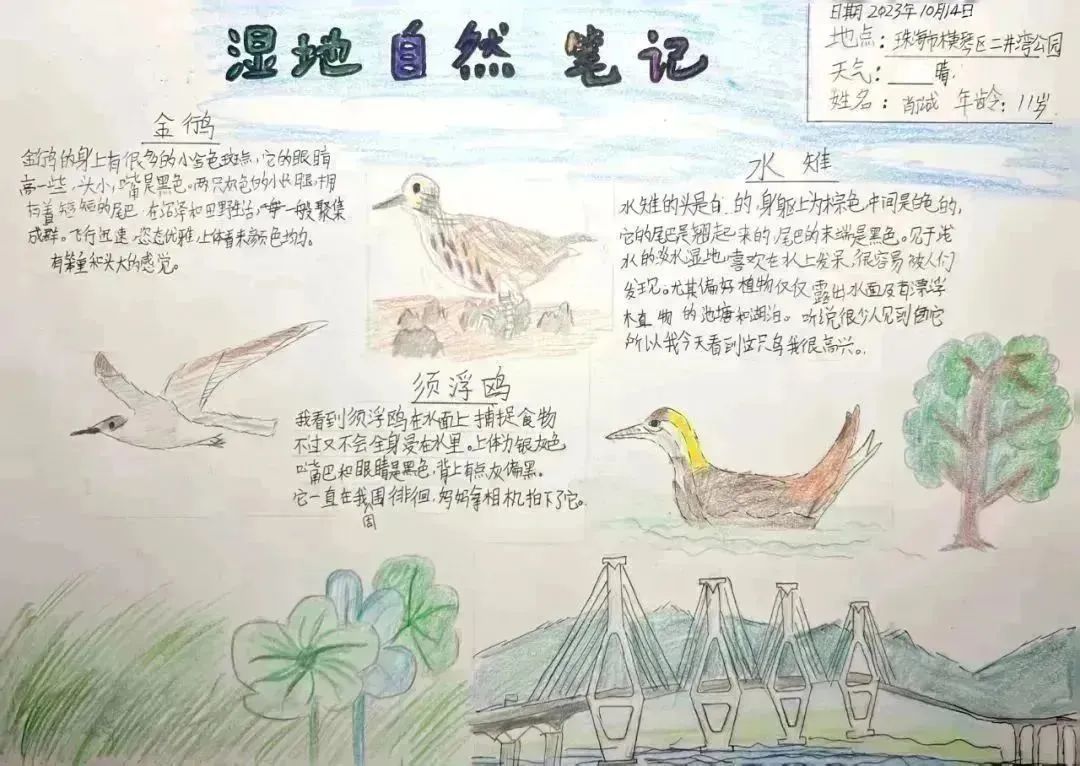 湿地自然笔记
日期2023年10月14日
地点：珠海市横琴区二井湾公园
天气：晴
姓名：肖诚 年龄：11岁
金鸻
金鸻的身上有很多的小金色斑点，它的眼睛
高一些，头小，嘴是黑色。两只灰色的小长腿拥
有着短短的尾巴 在沼泽和田野生活，一般聚集
成群。飞行迅速，姿态优雅，上体看来颜色均匀。
有笨重和头大的感觉。
水雉
水雉的头是白的，身躯上为棕色中间是白色的，
它的尾巴是翘起来的，尾巴的末端是黑色。见于浅
水的淡水湿地，喜欢在水上发呆，很容易被人们
发现。尤其偏好植物仅仅露出水面及有漂浮
植物的池塘和湖泊。听说很少人见到它
所以我今天看到这只鸟我很高兴。
须浮鸥
我看到须浮鸥在水面上捕捉食物
不过又不会全身浸在水里。上体为银灰色
嘴巴和眼睛是黑色，背上有点灰偏黑。
它一直在我周围徘徊，妈妈拿相机拍下了它。